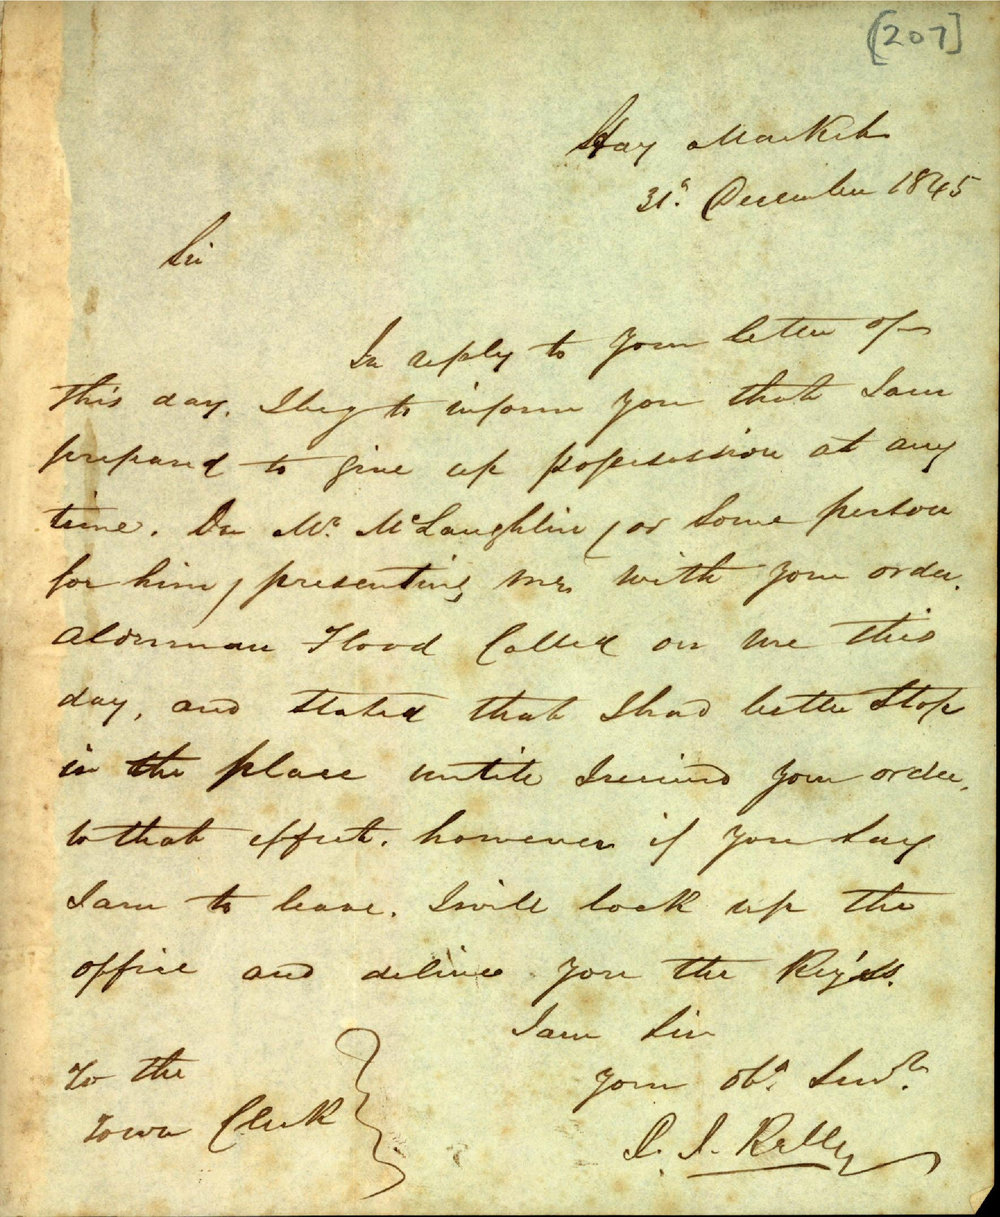 [207]
Hay Market
31st December 1845
Sir
In reply to your letter of
this day. I beg to inform you that I am
prepared to give up possession at any
time. On Mr. McLaughlin (or some person
for him) presenting me with your order.
Alderman Flood Called on me this
day, and stated that I had better stop
in the place until I received your order,
to that effect. however if you say
I am to leave. I will lock up the
office and deliver you the Key's.
I am Sir
your obt. Servt.
Reilly
To the
Town Clerk